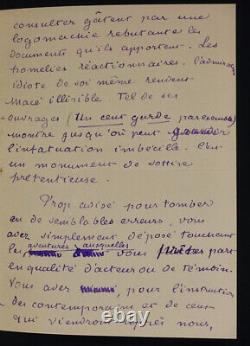 consulter gâtent par une
logomachie rebutante les
documents qu'ils apportent. Les
homélies réactionnaires, l'admiration
idiote de soi même rendent
Macé illisible. Tel de ses
ouvrages (Un cent garde par exemple)
montre jusqu'où peut grandir
l'infatuation imbécile. C'est
un monument de sottise
prétentieuse.
Trop avisé pour tomber
en de semblables erreurs, vous
avez simplement déposé touchant
les aventures auxquelles
vous prîtes part
en qualité d'acteur ou de témoin.
Vous avez, pour l'instruction
des contemporains et de ceux
qui viendront après nous,
© www.benonsaffaire.fr